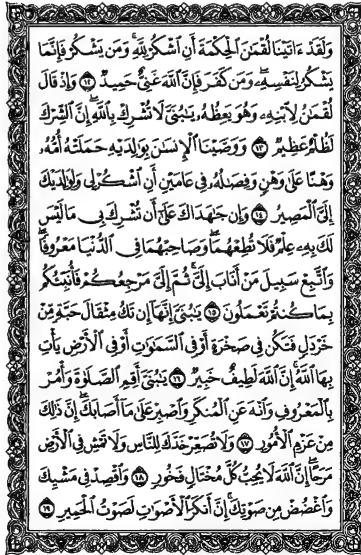 وَلَقَدْ ءَاتَيْنَا لُقْمَٰنَ ٱلْحِكْمَةَ أَنِ ٱشْكُرْ لِلَّهِ وَمَن يَشْكُرْ فَإِنَّمَا
يَشْكُرُ لِنَفْسِهِۦ وَمَن كَفَرَ فَإِنَّ ٱللَّهَ غَنِىٌّ حَمِيدٌ ١٢ وَإِذْ قَالَ
لُقْمَٰنُ لِٱبْنِهِۦ وَهُوَ يَعِظُهُۥ يَٰبُنَىَّ لَا تُشْرِكْ بِٱللَّهِ إِنَّ ٱلشِّرْكَ
لَظُلْمٌ عَظِيمٌ ١٣ وَوَصَّيْنَا ٱلْإِنسَٰنَ بِوَٰلِدَيْهِ حَمَلَتْهُ أُمُّهُۥ
وَهْنًا عَلَىٰ وَهْنٍ وَفِصَٰلُهُۥ فِى عَامَيْنِ أَنِ ٱشْكُرْ لِى وَلِوَٰلِدَيْكَ
إِلَىَّ ٱلْمَصِيرُ ١٤ وَإِن جَٰهَدَاكَ عَلَىٰٓ أَن تُشْرِكَ بِى مَا لَيْسَ
لَكَ بِهِۦ عِلْمٌ فَلَا تُطِعْهُمَا وَصَاحِبْهُمَا فِى ٱلدُّنْيَا مَعْرُوفًا
وَٱتَّبِعْ سَبِيلَ مَنْ أَنَابَ إِلَىَّ ثُمَّ إِلَىَّ مَرْجِعُكُمْ فَأُنَبِّئُكُم
بِمَا كُنتُمْ تَعْمَلُونَ ١٥ يَٰبُنَىَّ إِنَّهَآ إِن تَكُ مِثْقَالَ حَبَّةٍ مِّنْ
خَرْدَلٍ فَتَكُن فِى صَخْرَةٍ أَوْ فِى ٱلسَّمَٰوَٰتِ أَوْ فِى ٱلْأَرْضِ يَأْتِ
بِهَا ٱللَّهُ إِنَّ ٱللَّهَ لَطِيفٌ خَبِيرٌ ١٦ يَٰبُنَىَّ أَقِمِ ٱلصَّلَوٰةَ وَأْمُرْ
بِٱلْمَعْرُوفِ وَٱنْهَ عَنِ ٱلْمُنكَرِ وَٱصْبِرْ عَلَىٰ مَآ أَصَابَكَ إِنَّ ذَٰلِكَ
مِنْ عَزْمِ ٱلْأُمُورِ ١٧ وَلَا تُصَعِّرْ خَدَّكَ لِلنَّاسِ وَلَا تَمْشِ فِى ٱلْأَرْضِ
مَرَحًا إِنَّ ٱللَّهَ لَا يُحِبُّ كُلَّ مُخْتَالٍ فَخُورٍ ١٨ وَٱقْصِدْ فِى مَشْيِكَ
وَٱغْضُضْ مِن صَوْتِكَ إِنَّ أَنكَرَ ٱلْأَصْوَٰتِ لَصَوْتُ ٱلْحَمِيرِ ١٩